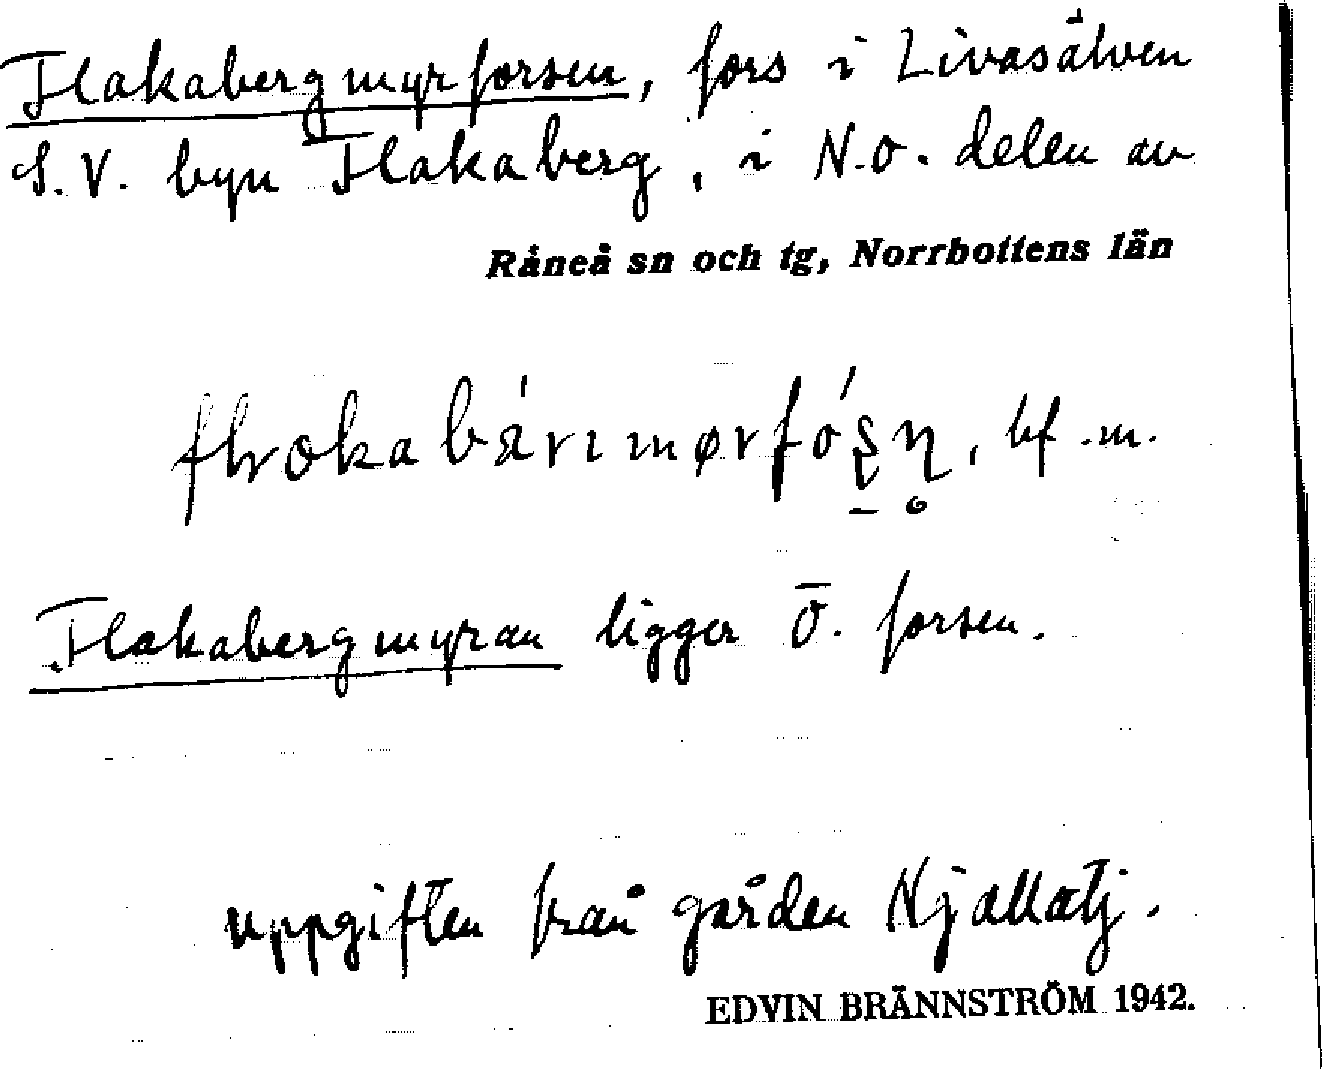 Flakabergmyrforsen, fors i Livasälven
S.V. byn Flakaberg, i N.O. delen av
Råneå sn och tg, Norrbottens län
bf.m.
Flakabergmyran ligger Ö. forsen.
uppgiften från gården Njallatj.
EDVIN BRÄNNSTRÖM 1942.